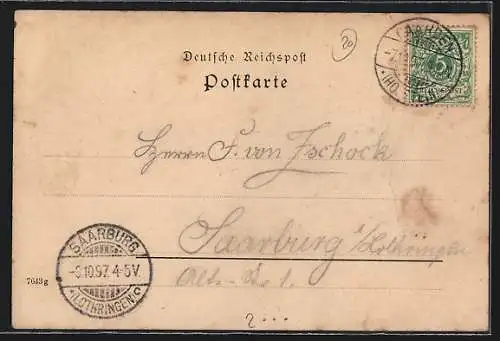 20
Deutsche Reichspost
Postkarte
5
Herrn F. von Zschock
Saarburg i/Lothringen
SAARBURG
-8.10.97. 4-5V.
*(LOTHRINGEN)
7643 g